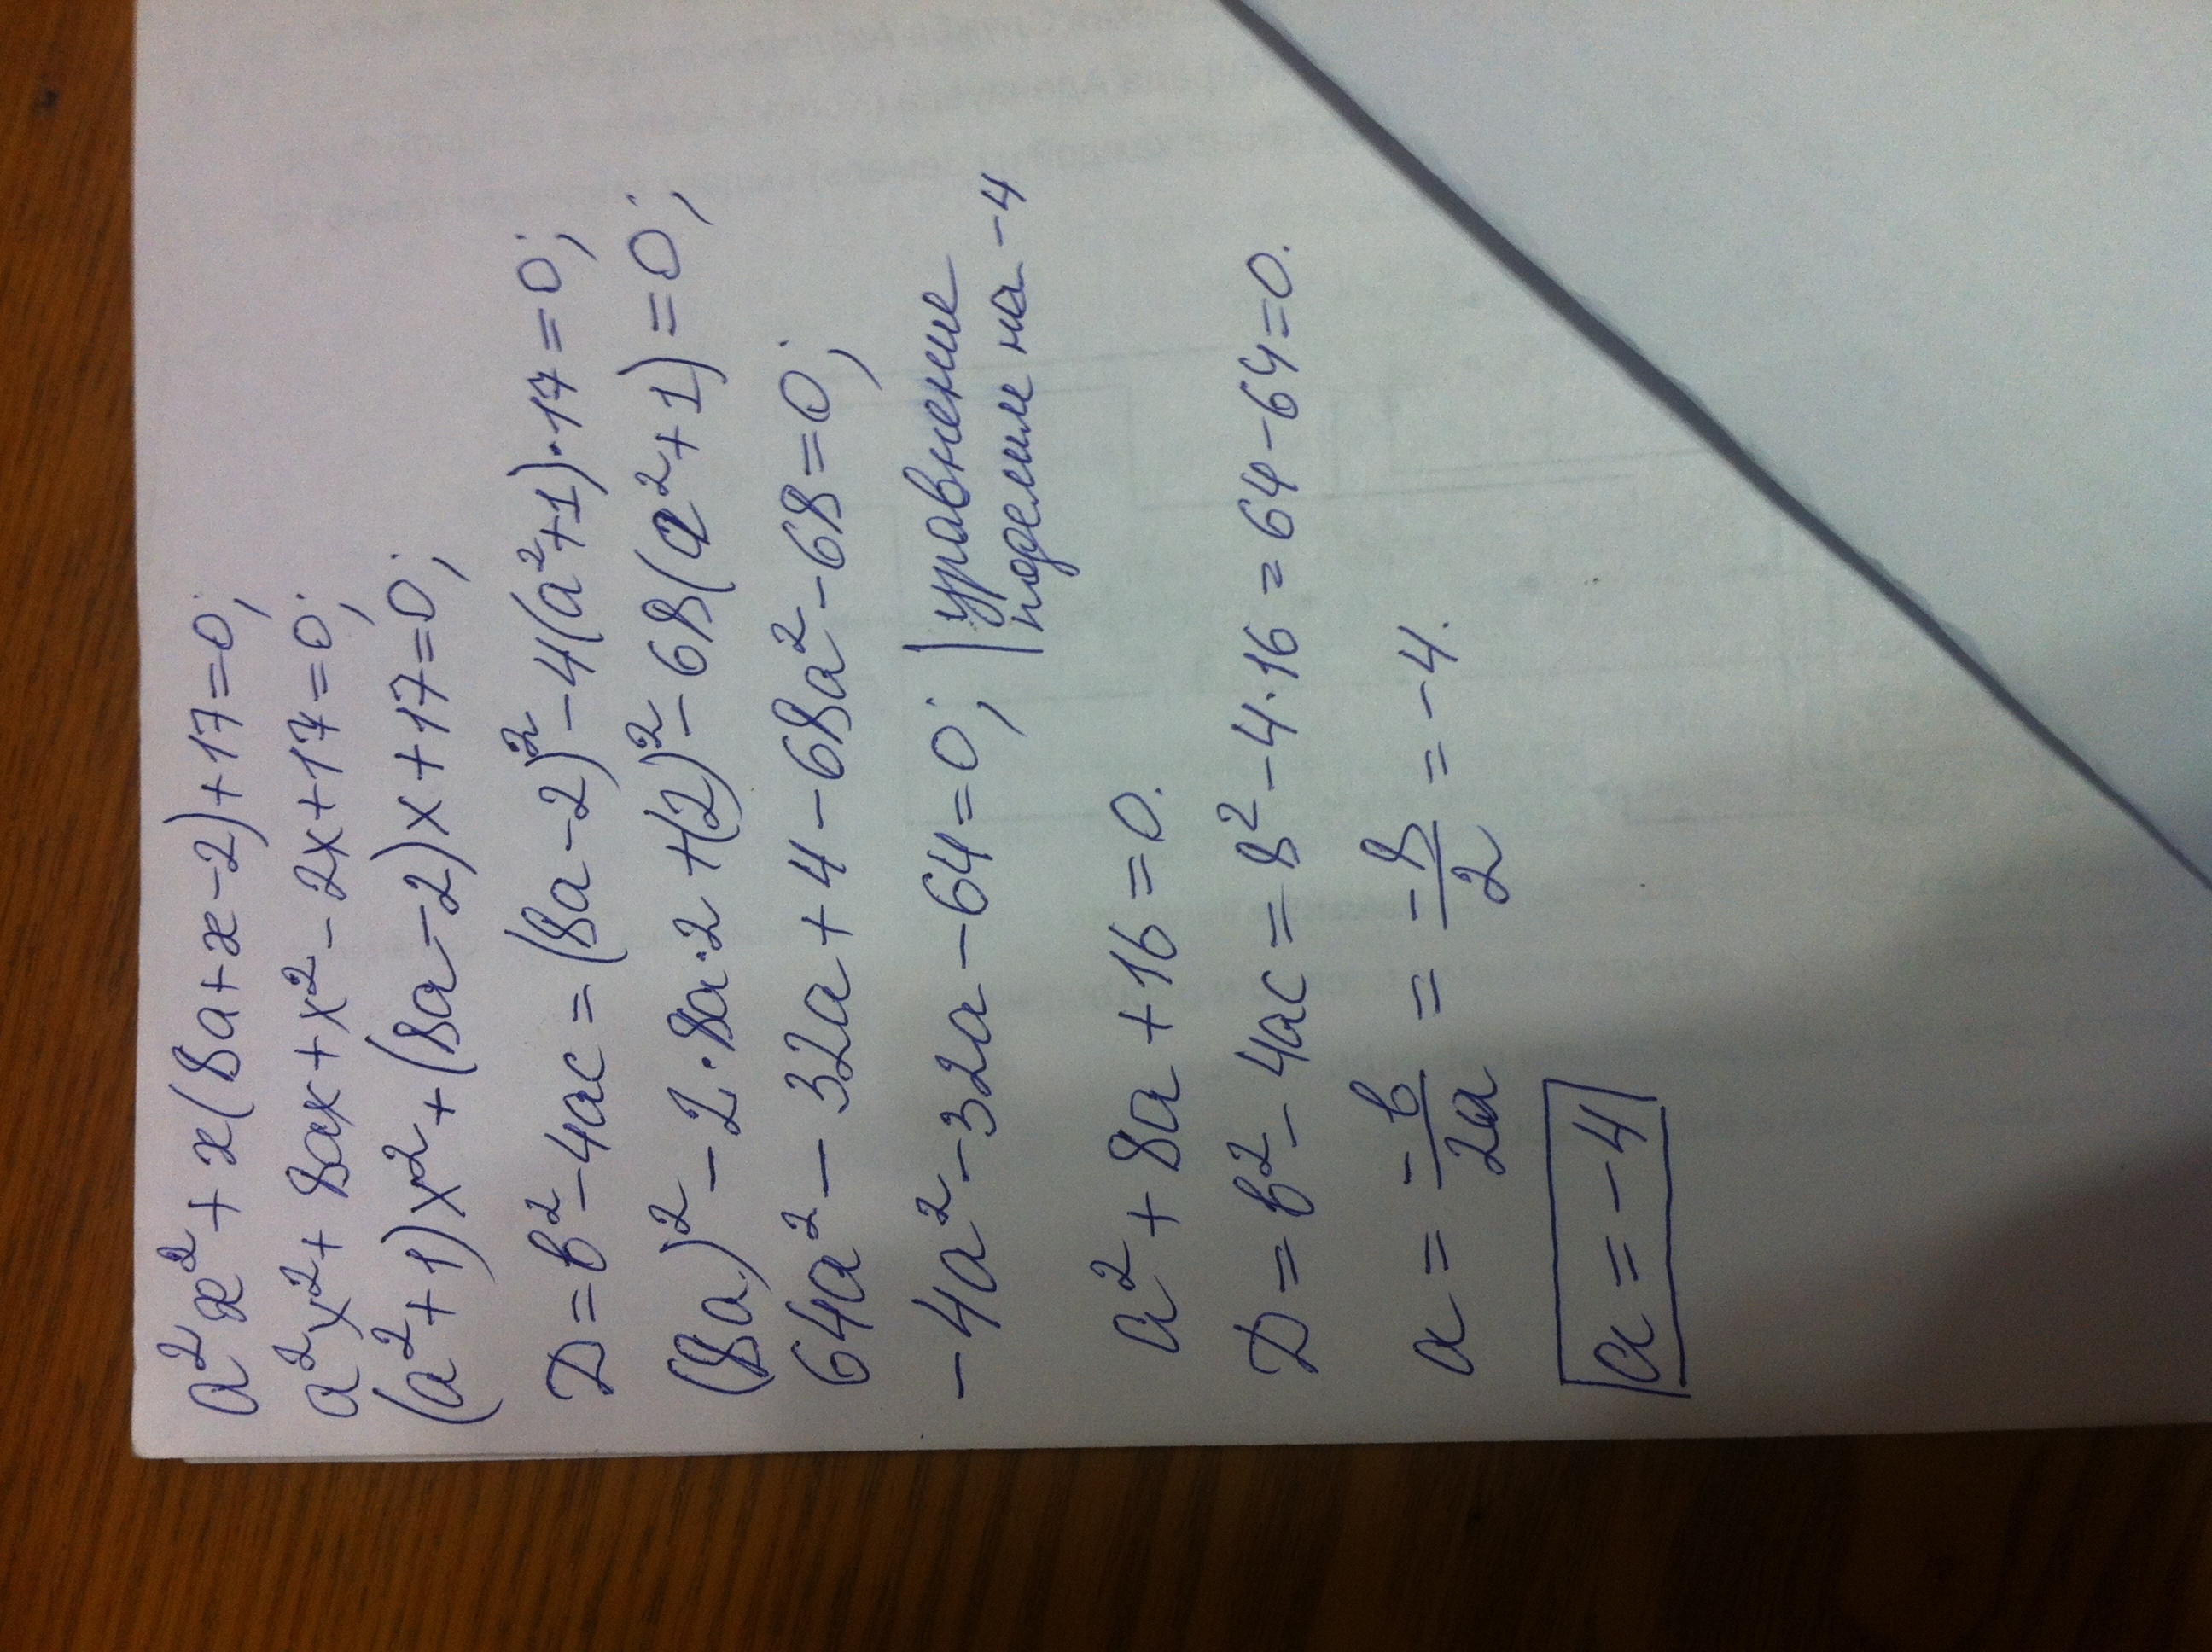 a²x² + x(8a+x-2)+17=0;
a²x²+8ax+x²-2x+17=0;
(a²+1)x²+(8a-2)x+17=0;
D=b²-4ac=(8a-2)²-4(a²+1)·17=0;
(8a)²-2·8a·2+(2)²-68(a²+1)=0;
64a²-32a+4-68a²-68=0;
-4a²-32a-64=0; | уравнение
поделим на -4
a²+8a+16=0.
D=b²-4ac=8²-4·16=64-64=0.
a=-b/2a=-8/2=-4.
a=-4